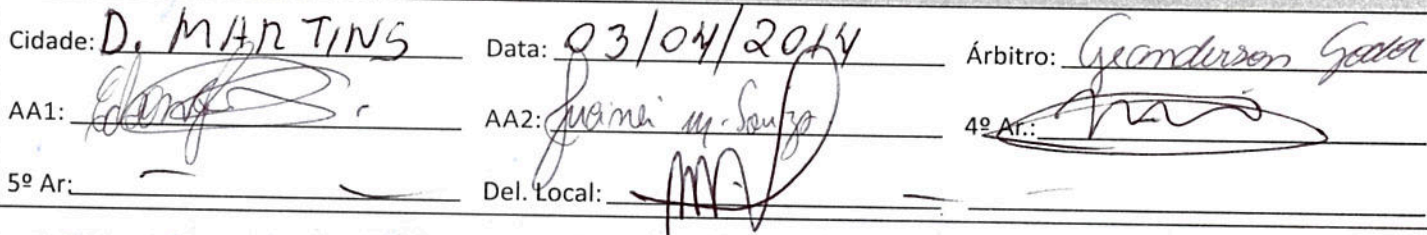 Cidade: D. MARTINS Data: 03/04/2014 Árbitro: Geanderson Godoi
AA1: AA2: Jucinei M. Souza 4º Ar.:
5º Ar: Del. Local: